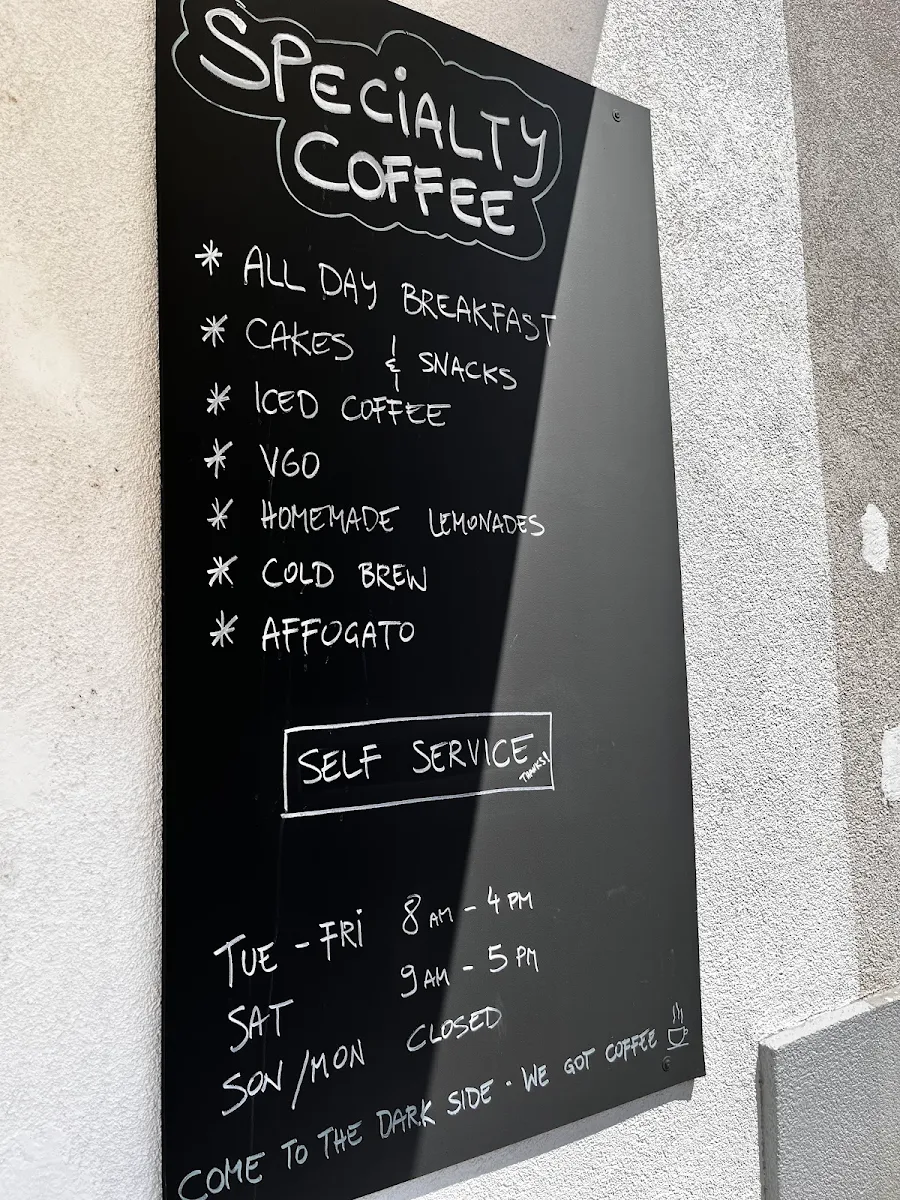 SPECiALTY
COFFEE
* ALL DAY BREAKFAST
* CAKES & SNACKS
* ICED COFFEE
* V60
* HOMEMADE LEMONADES
* COLD BREW
* AFFOGATO
SELF SERVICE
THANKS!
TUE - FRi 8 AM - 4 PM
SAT 9 AM - 5 PM
SON/MON CLOSED
COME TO THE DARK SIDE · WE GOT COFFEE